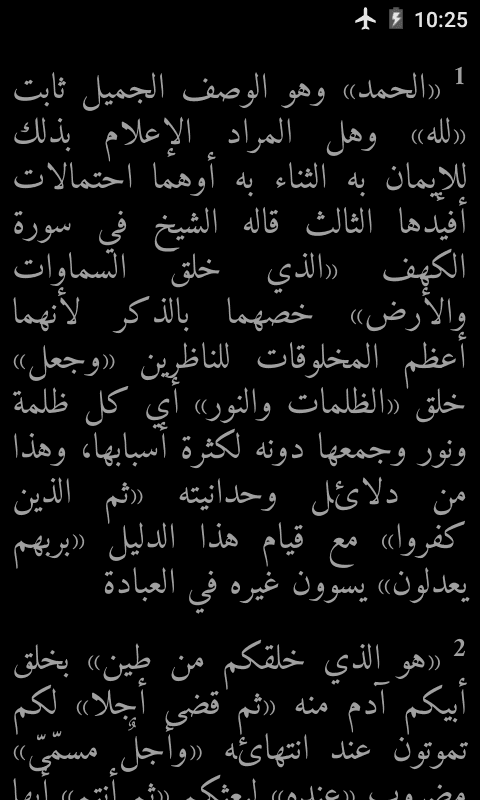 10:25
1 «الحمد» وهو الوصف الجميل ثابت
«لله» وهل المراد الإعلام بذلك
للإيمان به الثناء به أوهما احتمالات
أفيدها الثالث قاله الشيخ في سورة
الكهف «الذي خلق السماوات
والأرض» خصهما بالذكر لأنهما
أعظم المخلوقات للناظرين «وجعل»
خلق «الظلمات والنور» أي كل ظلمة
ونور وجمعها دونه لكثرة أسبابها، وهذا
من دلائل وحدانيته «ثم الذين
كفروا» مع قيام هذا الدليل «بربهم
يعدلون» يسوون غيره في العبادة
2 «هو الذي خلقكم من طين» بخلق
أبيكم آدم منه «ثم قضى أجلا» لكم
تموتون عند انتهائه «وأجلٌ مسمّىّ»
مضروب «عنده» لبعثكم «ثم أنتم» أيها